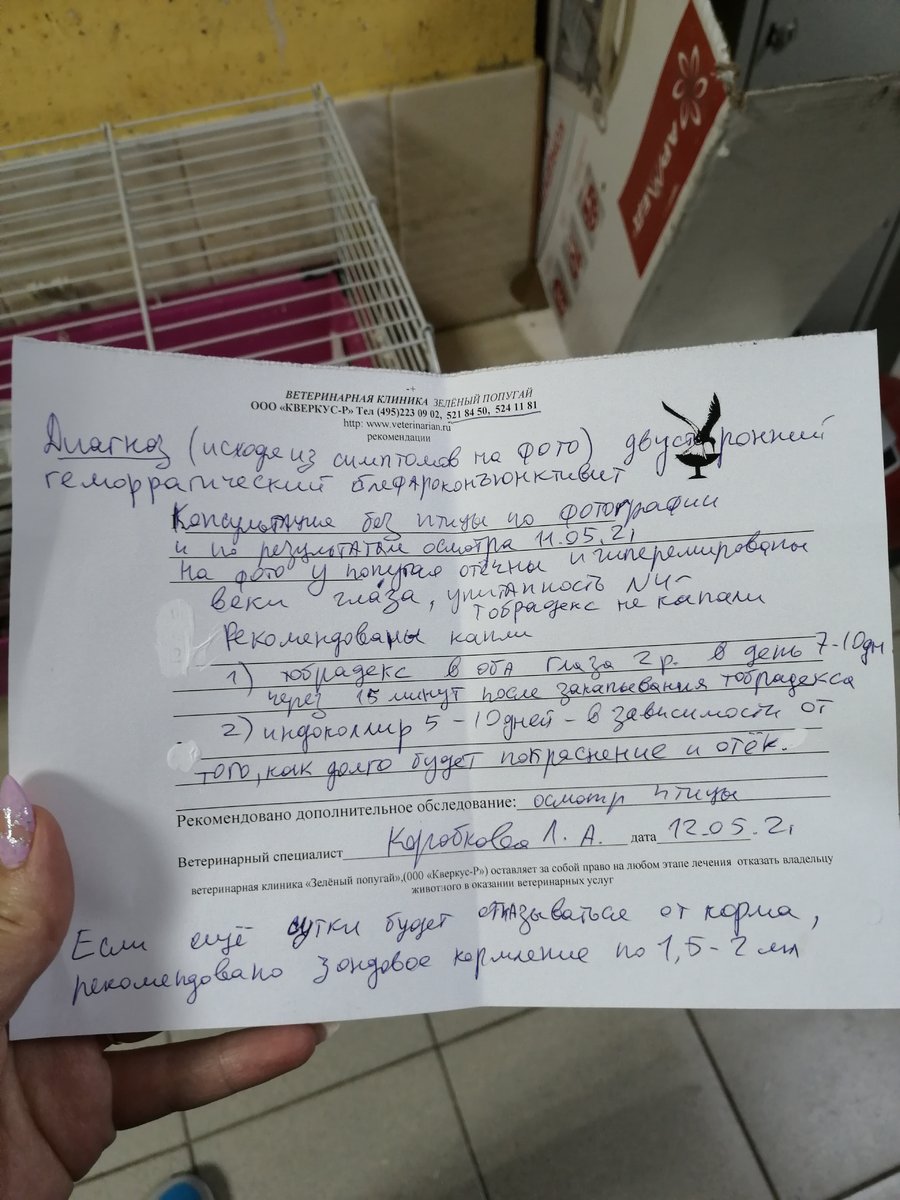 ВЕТЕРИНАРНАЯ КЛИНИКА ЗЕЛЁНЫЙ ПОПУГАЙ
ООО «КВЕРКУС-Р» Тел (495)223 09 02, 521 84 50, 524 11 81
http: www.veterinarian.ru
рекомендации
Диагноз (исходя из симптомов на фото) двусторонний
геморрагический блефароконъюнктивит
Консультация без птицы по фотографии
и по результатам осмотра 11.05.21
На фото у попугая отёчны и гиперемированы
веки глаза, упитанность N4-
Тобрадекс не капали
Рекомендованы капли
1) тобрадекс в оба глаза 2 р. в день 7-10дн
через 15 минут после закапывания тобрадекса
2) индоколлир 5-10 дней - в зависимости от
того, как долго будет покраснение и отёк.
Рекомендовано дополнительное обследование: осмотр птицы
Ветеринарный специалист Коробкова Л. А. дата 12.05.21
ветеринарная клиника «Зелёный попугай»,(ООО «Кверкус-Р») оставляет за собой право на любом этапе лечения отказать владельцу
животного в оказании ветеринарных услуг
Если ещё сутки будет отказываться от корма,
рекомендовано зондовое кормление по 1,5-2 мл